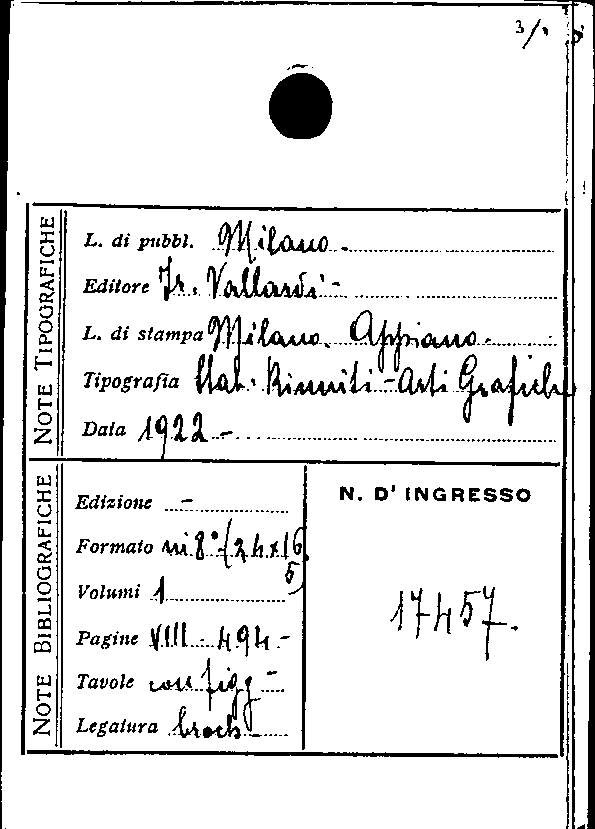 3/
NOTE TIPOGRAFICHE
L. di pubbl. Milano -
Editore Fr. Vallardi -
L. di stampa Milano. Appiano -
Tipografia Stab. Riuniti - Arti Grafiche
Data 1922 -
NOTE BIBLIOGRAFICHE
Edizione -
Formato in 8° (24x16
5)
Volumi 1
Pagine VIII - 494 -
Tavole con figg -
Legatura broch -
N. D' INGRESSO
17457.